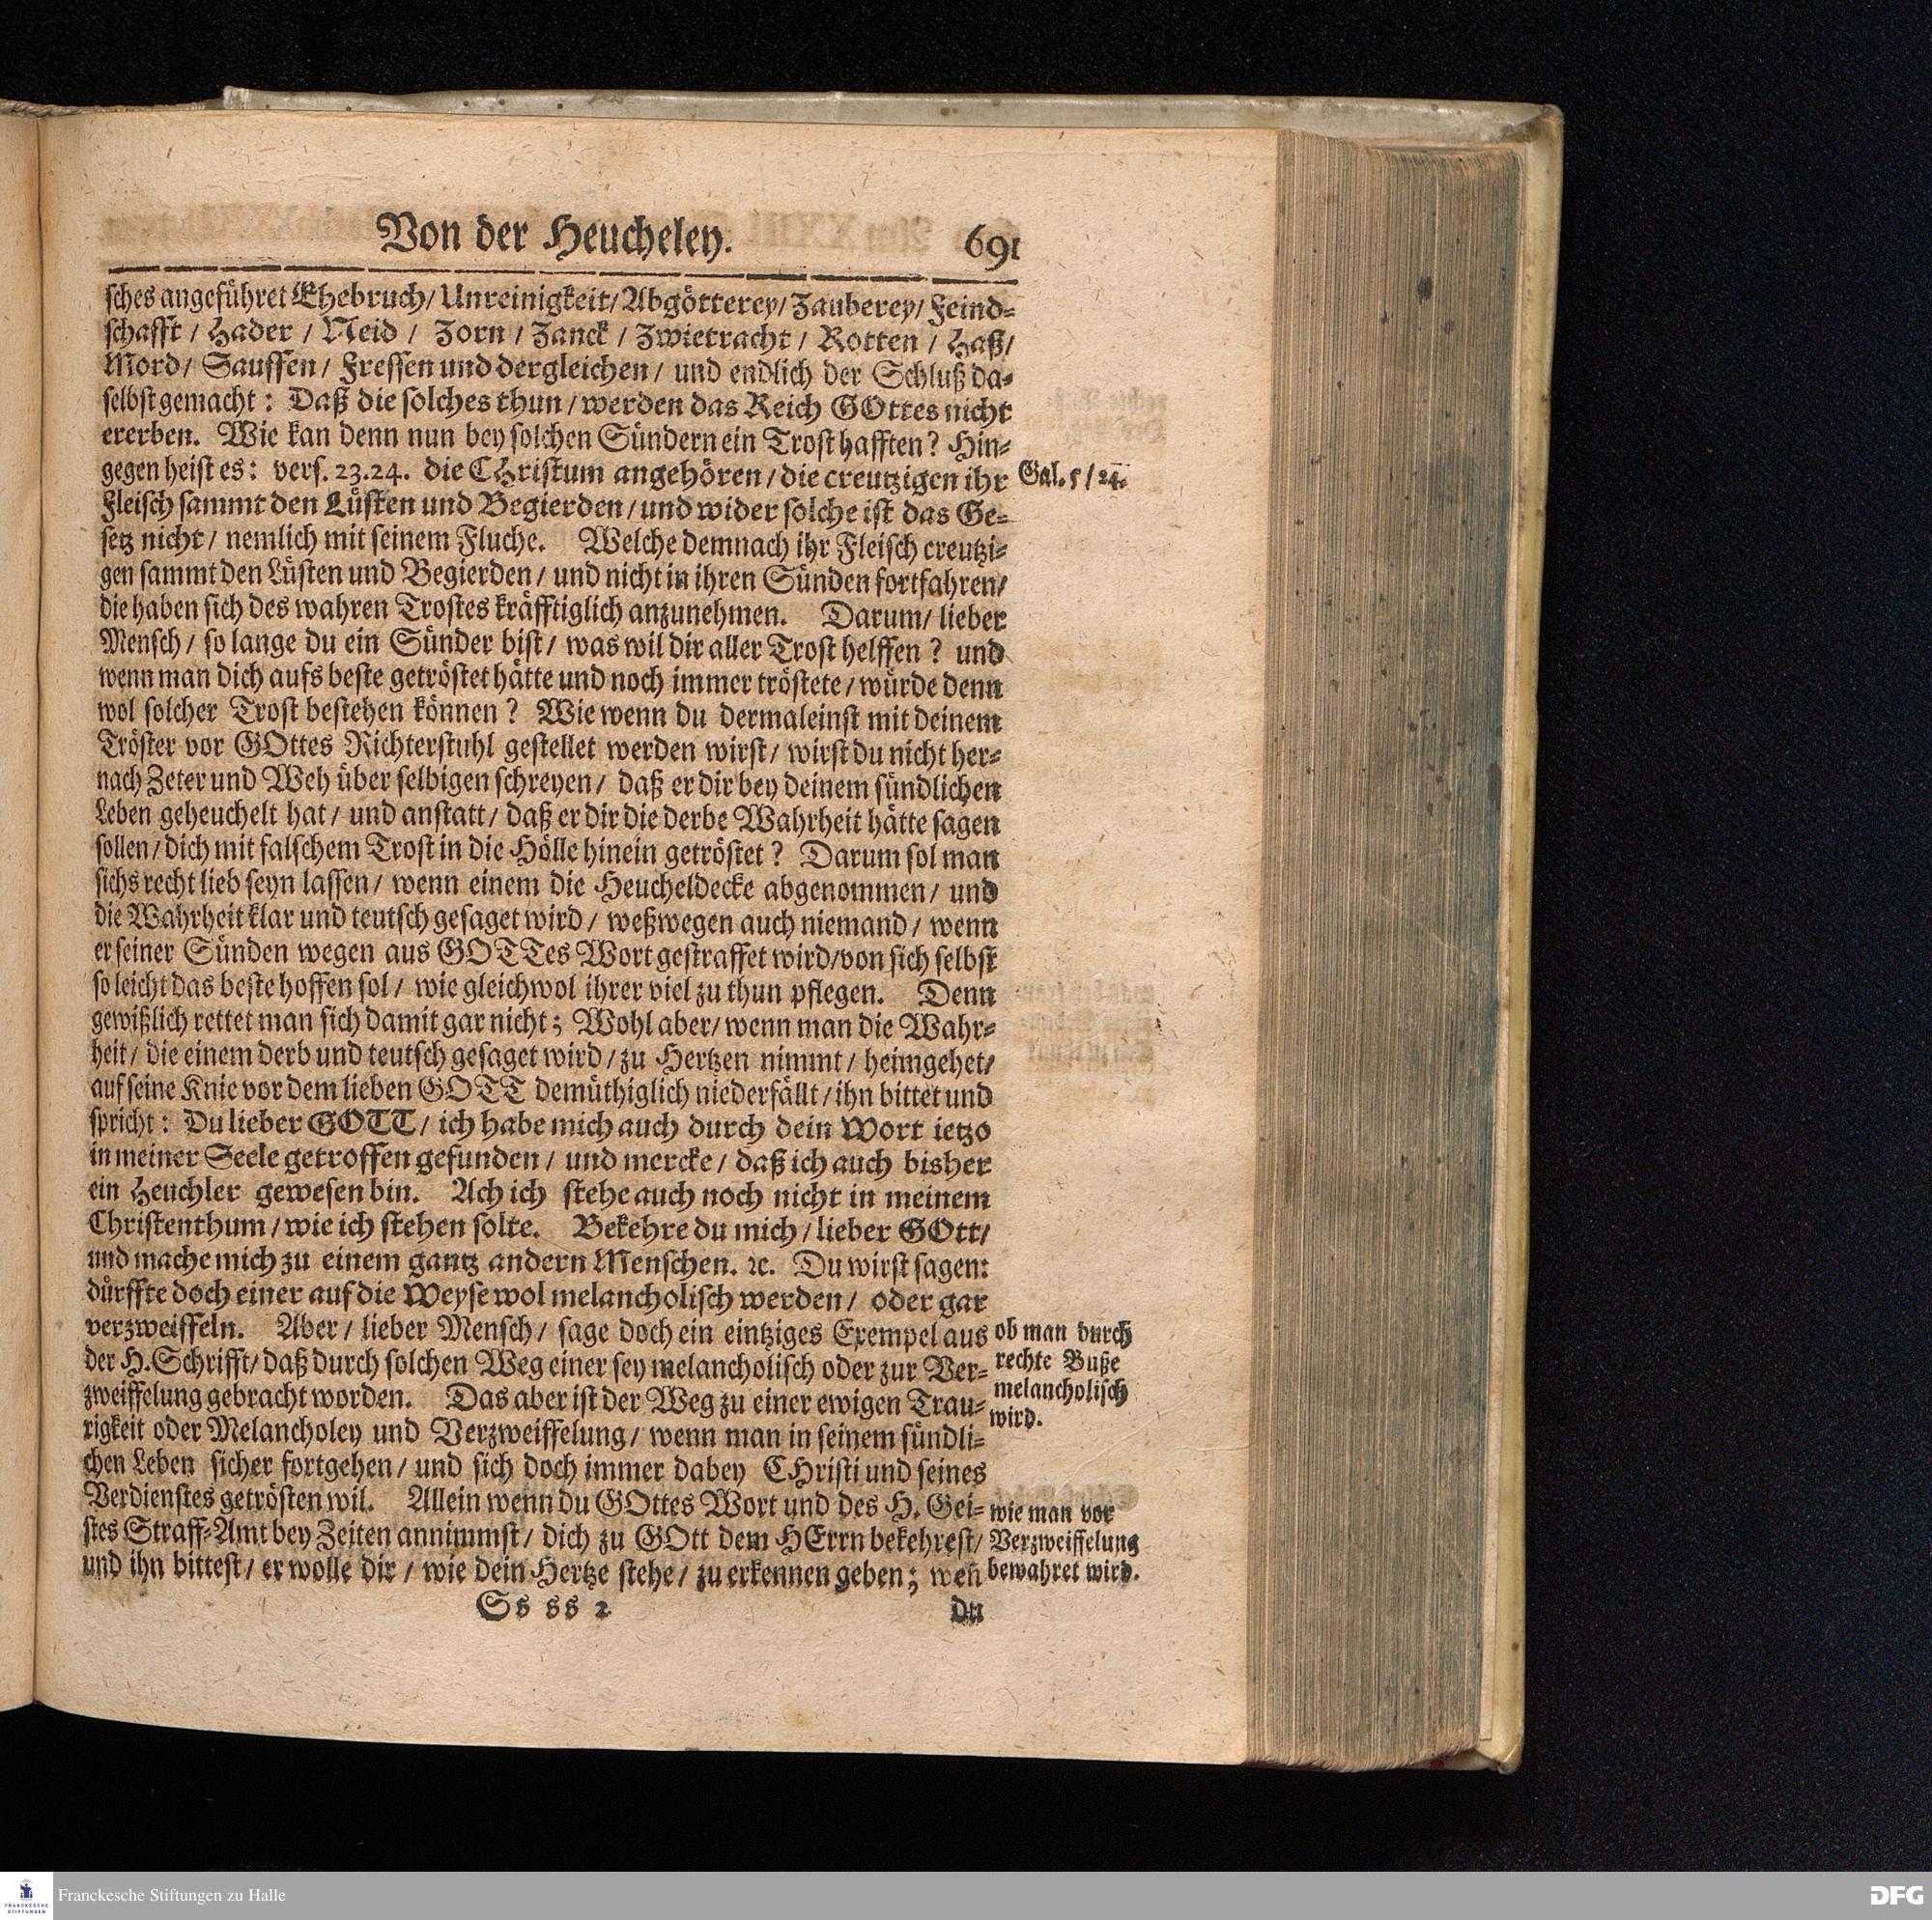 Von der Heucheley. 691
sches angeführet Ehebruch/ Unreinigkeit/ Abgötterey/ Zauberey/ Feind-
schafft / Hader / Neid / Zorn / Zanck / Zwietracht / Rotten / Haß/
Mord/ Sauffen/ Fressen und dergleichen/ und endlich der Schluß da-
selbst gemacht: Daß die solches thun/ werden das Reich GOttes nicht
ererben. Wie kan denn nun bey solchen Sündern ein Trost hafften? Hin-
gegen heist es: vers. 23.24. die CHristum angehören/ die creutzigen ihr
Gal. 5/24.
Fleisch sammt den Lüsten und Begierden/ und wider solche ist das Ge-
setz nicht/ nemlich mit seinem Fluche. Welche demnach ihr Fleisch creutzi-
gen sammt den Lüsten und Begierden/ und nicht in ihren Sünden fortfahren/
die haben sich des wahren Trostes kräfftiglich anzunehmen. Darum/ lieber
Mensch/ so lange du ein Sünder bist/ was wil dir aller Trost helffen? und
wenn man dich aufs beste getröstet hätte und noch immer tröstete/ würde denn
wol solcher Trost bestehen können? Wie wenn du dermaleinst mit deinem
Tröster vor GOttes Richterstuhl gestellet werden wirst/ wirst du nicht her-
nach Zeter und Weh über selbigen schreyen/ daß er dir bey deinem sündlichen
Leben geheuchelt hat/ und anstatt/ daß er dir die derbe Wahrheit hätte sagen
sollen/ dich mit falschem Trost in die Hölle hinein getröstet? Darum sol man
sichs recht lieb seyn lassen/ wenn einem die Heucheldecke abgenommen/ und
die Wahrheit klar und teutsch gesaget wird/ weßwegen auch niemand/ wenn
er seiner Sünden wegen aus GOTTes Wort gestraffet wird/ von sich selbst
so leicht das beste hoffen sol/ wie gleichwol ihrer viel zu thun pflegen. Denn
gewißlich rettet man sich damit gar nicht; Wohl aber/ wenn man die Wahr-
heit/ die einem derb und teutsch gesaget wird/ zu Hertzen nimmt/ heimgehet/
auf seine Knie vor dem lieben GOTT demüthiglich niederfällt/ ihn bittet und
spricht: Du lieber GOTT/ ich habe mich auch durch dein Wort ietzo
in meiner Seele getroffen gefunden/ und mercke/ daß ich auch bisher
ein Heuchler gewesen bin. Ach ich stehe auch noch nicht in meinem
Christenthum/ wie ich stehen solte. Bekehre du mich/ lieber GOtt/
und mache mich zu einem gantz andern Menschen. ꝛc. Du wirst sagen:
dürffte doch einer auf die Weyse wol melancholisch werden/ oder gar
verzweiffeln. Aber/ lieber Mensch/ sage doch ein eintziges Exempel aus
der H. Schrifft/ daß durch solchen Weg einer sey melancholisch oder zur Ver-
zweiffelung gebracht worden. Das aber ist der Weg zu einer ewigen Trau-
rigkeit oder Melancholey und Verzweiffelung/ wenn man in seinem sündli-
ob man durch
rechte Buße
melancholisch
wird.
chen Leben sicher fortgehen/ und sich doch immer dabey CHristi und seines
Verdienstes getrösten wil. Allein wenn du GOttes Wort und des H. Gei-
stes Straff-Amt bey Zeiten annimmst/ dich zu GOtt dem HErrn bekehrest/
und ihn bittest/ er wolle dir / wie dein Hertze stehe/ zu erkennen geben; weñ
wie man vor
Verzweiffelung
bewahret wird.
Ss ss 2 du
Franckesche Stiftungen zu Halle
FRANCKESCHE STIFTUNGEN
DFG